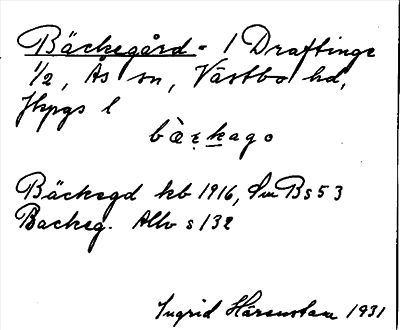 Bäckegård - 1 Draftinge
1/2, Ås sn, Västbo hd,
Jkpgs l
Bäcksgd kb 1916, Bs 53
Backeg. Allv s 132
Ingrid 1931